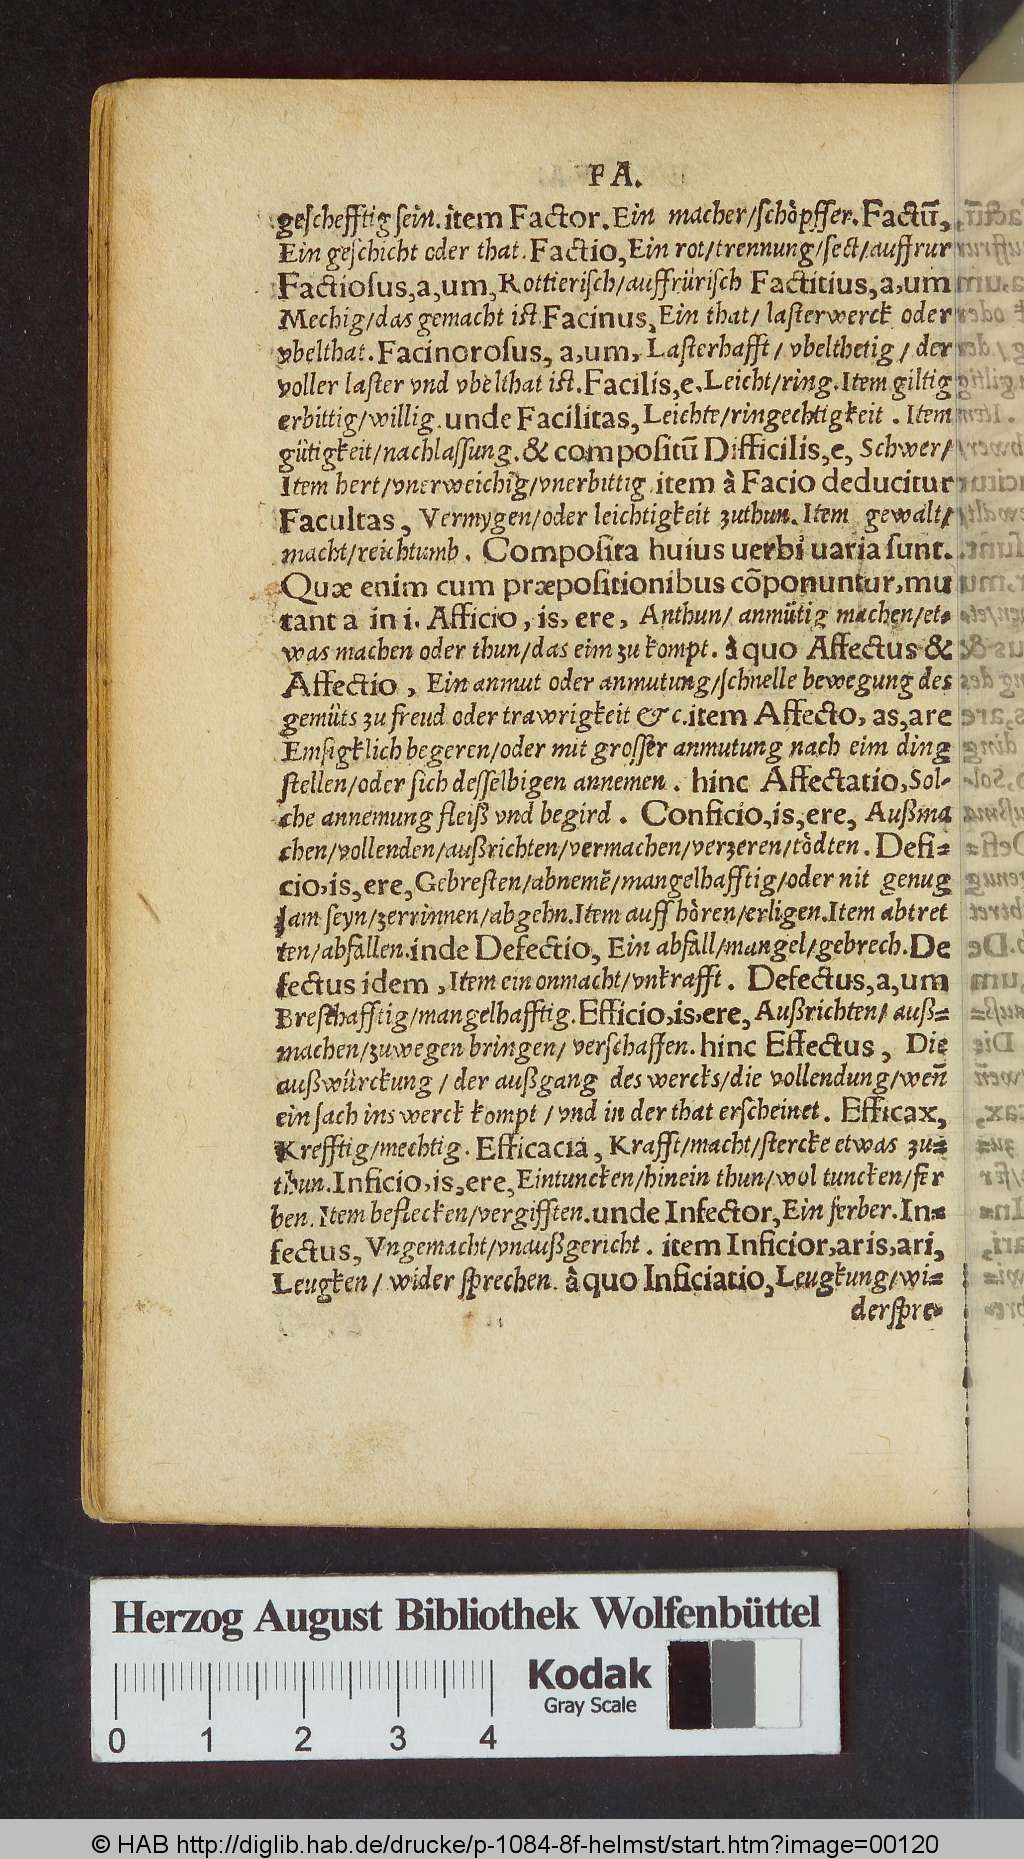 FA.
geſchefftig ſein. item Factor. Ein macher/ſchòpffer. Factū,
Ein geſchicht oder that. Factio, Ein rot/trennung/ſect/auffrur
Factioſus, a, um, Rottieriſch/auffrüriſch Factitius, a, um
Mechig/das gemacht iſt. Facinus, Ein that/ laſterwerck oder
vbelthat. Facinoroſus, a, um, Laſterhafft/ vbelthetig / der
voller laſter vnd vbelthat iſt. Facilis, e, Leicht/ring. Item giltig
erbittig/willig. unde Facilitas, Leichte/ringechtigkeit . Item
gütigkeit/nachlaſſung. & compoſitū Difficilis, e, Schwer/
Item hert/vnerweichig/vnerbittig. item à Facio deducitur
Facultas, Vermygen/oder leichtigkeit zuthun. Item gewalt/
macht/reichtumb. Compoſita huius uerbi uaria ſunt.
Quæ enim cum præpoſitionibus cōponuntur, mu
tant a in i. Afficio, is, ere, Anthun/ anmütig machen/et-
was machen oder thun/das eim zu kompt. à quo Affectus &
Affectio, Ein anmut oder anmutung/ſchnelle bewegung des
gemüts zu freud oder trawrigkeit &c. item Affecto, as, are
Emſigklich begeren/oder mit groſſer anmutung nach eim ding
ſtellen/oder ſich deſſelbigen annemen . hinc Affectatio, Sol-
che annemung fleiß vnd begird . Conficio, is, ere, Außma
chen/vollenden/außrichten/vermachen/verzeren/tòdten. Defi=
cio, is, ere, Gebreſten/abnemē/mangelhafftig/oder nit genug
ſam ſeyn/zerrinnen/abgehn. Item auff hòren/erligen. Item abtret
ten/abfallen. inde Defectio, Ein abfall/mangel/gebrech. De
fectus idem, Item ein onmacht/vnkrafft . Defectus, a, um
Breſthafftig/mangelhafftig. Efficio, is, ere, Außrichten/ auß=
machen/zuwegen bringen/ verſchaffen. hinc Effectus, Die
außwürckung / der außgang des wercks/die vollendung/weñ
ein ſach ins werck kompt / vnd in der that erſcheinet. Efficax,
Krefftig/mechtig. Efficacia, Krafft/macht/ſtercke etwas zu=
thun. Inficio, is, ere, Eintuncken/hinein thun/wol tuncken/fer
ben. Item beflecken/vergifften. unde Infector, Ein ferber. In=
fectus, Vngemacht/vnaußgericht . item Inficior, aris, ari,
Leugken/ wider ſprechen. à quo Inficiatio, Leugkung/wi=
derſpre-
Herzog August Bibliothek Wolfenbüttel
Kodak
Gray Scale
0 1 2 3 4
© HAB http://diglib.hab.de/drucke/p-1084-8f-helmst/start.htm?image=00120